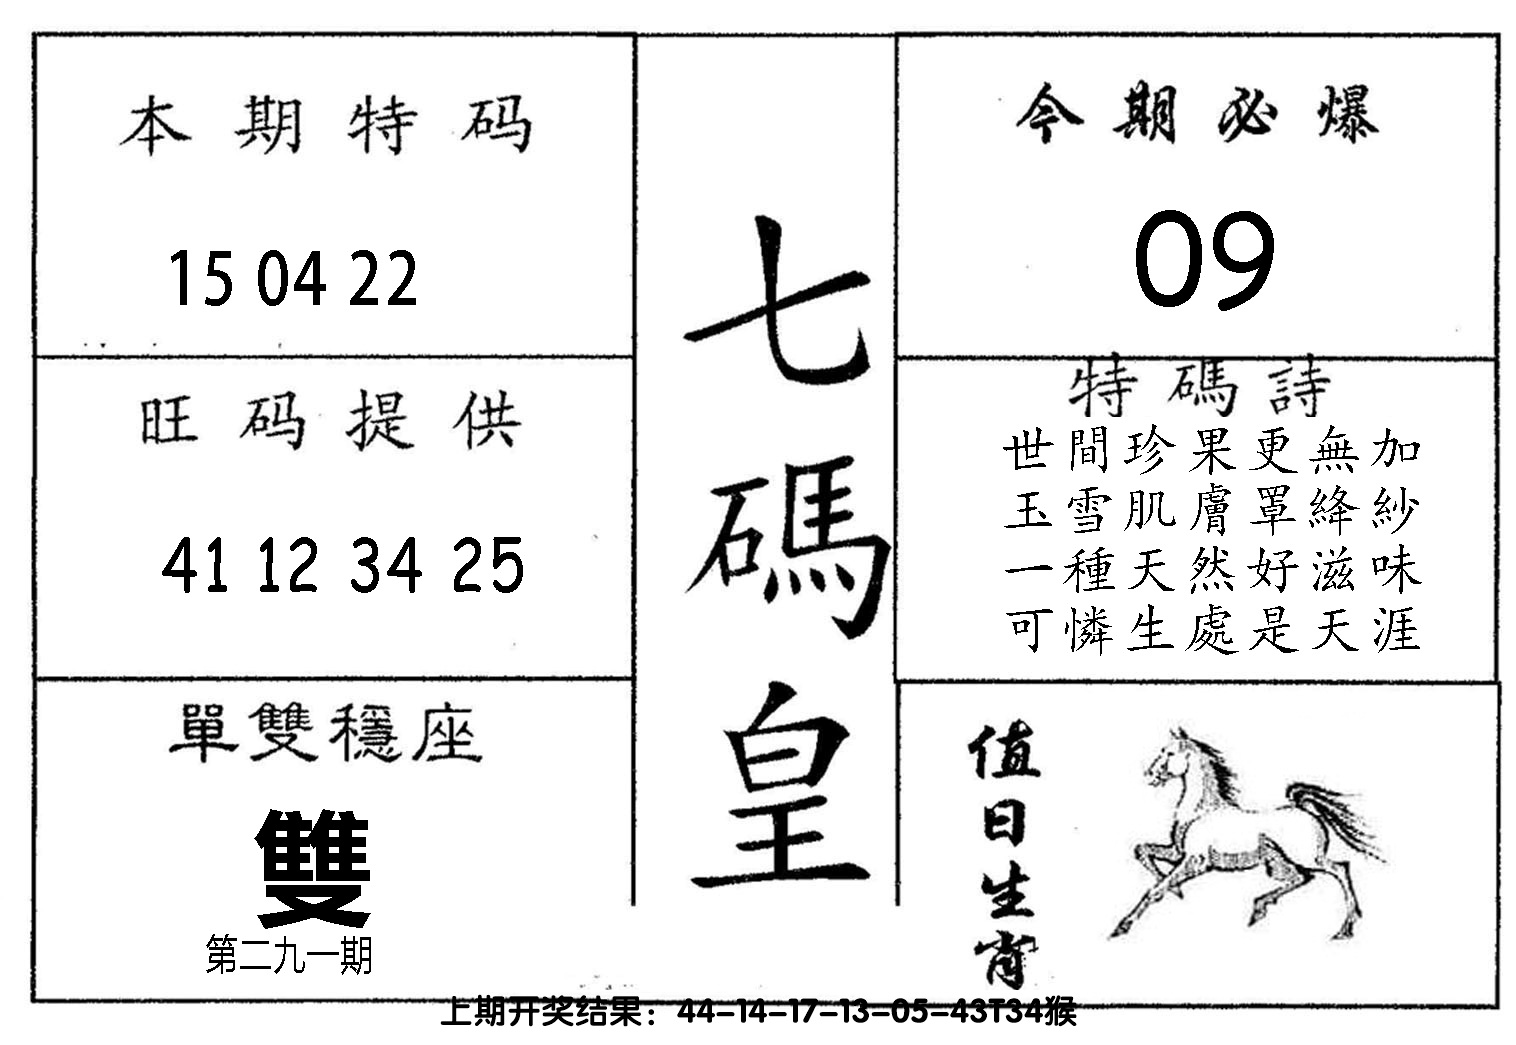 本期特码
15 04 22
旺码提供
41 12 34 25
單雙穩座
雙
第二九一期
七碼皇
今期必爆
09
特碼詩
世間珍果更無加
玉雪肌膚罩絳紗
一種天然好滋味
可憐生處是天涯
值日生肖
上期开奖结果：44-14-17-13-05-43T34猴